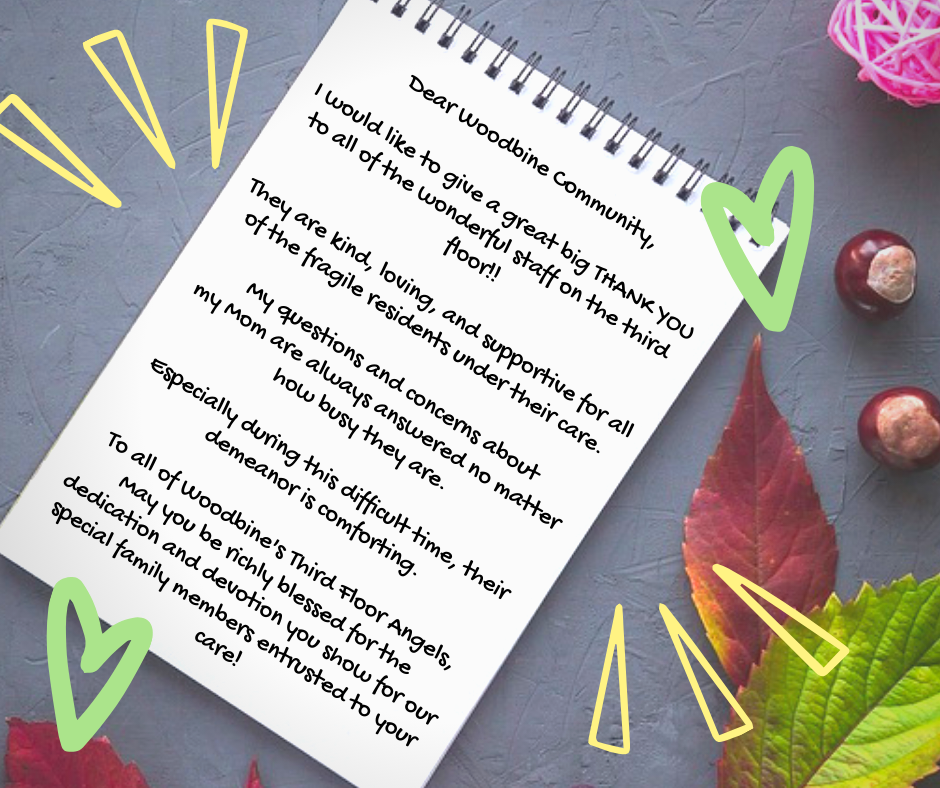 Dear Woodbine Community,
I would like to give a great big THANK YOU
to all of the wonderful staff on the third
floor!!
They are kind, loving, and supportive for all
of the fragile residents under their care.
My questions and concerns about
my Mom are always answered no matter
how busy they are.
Especially during this difficult time, their
demeanor is comforting.
To all of Woodbine's Third Floor Angels,
May you be richly blessed for the
dedication and devotion you show for our
special family members entrusted to your
care!